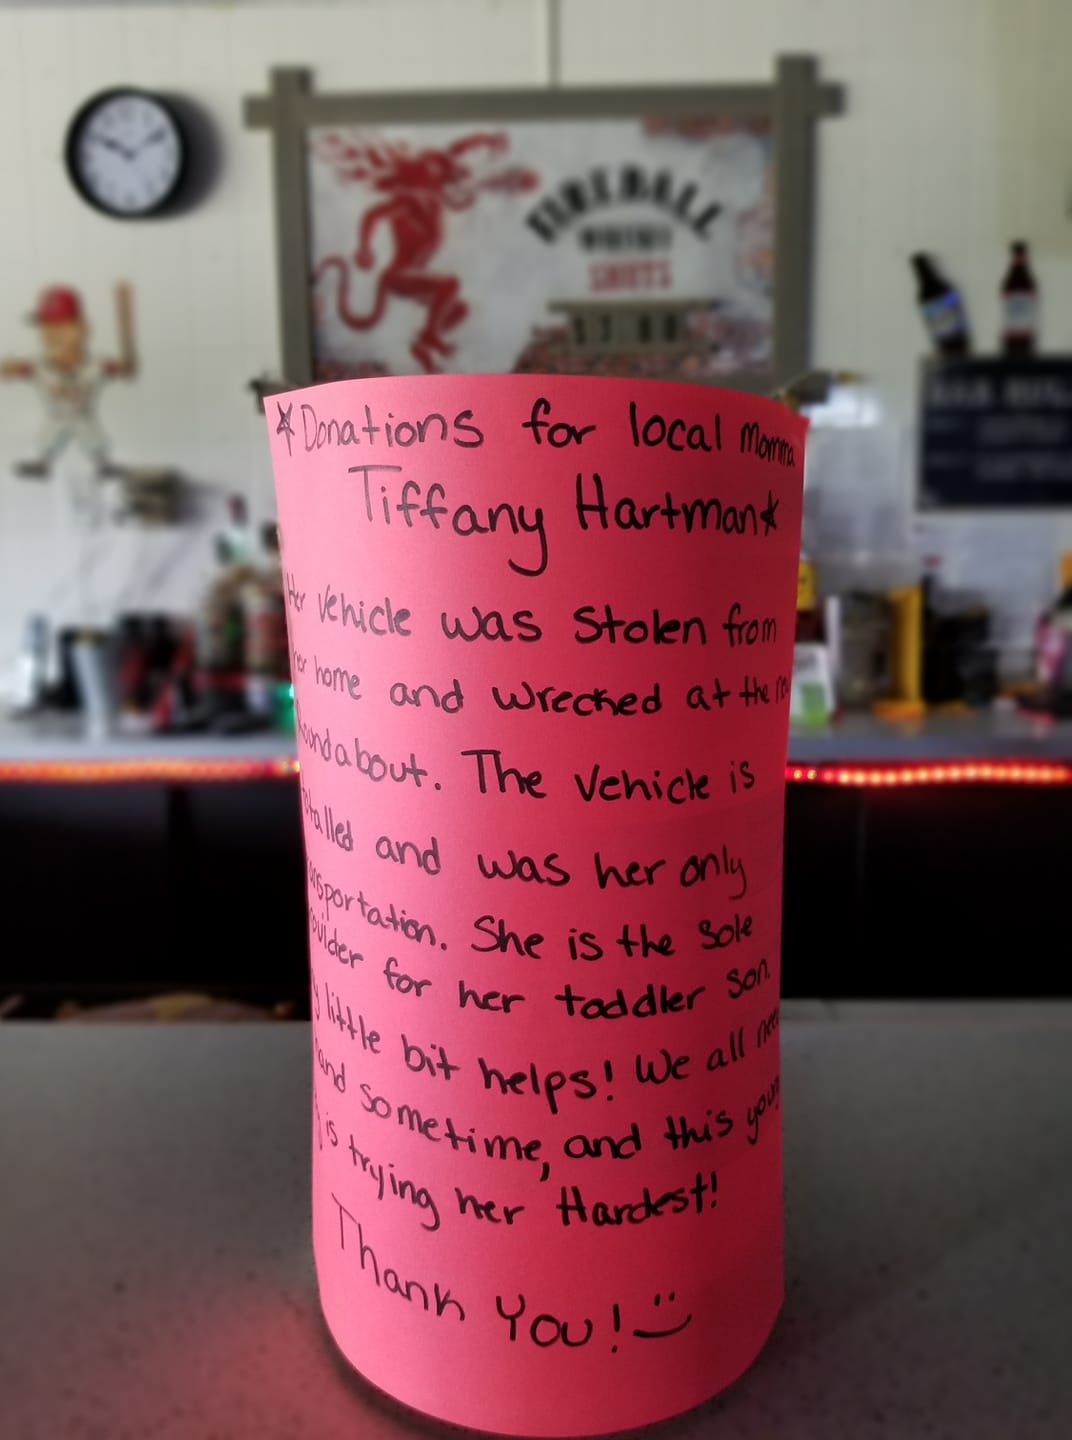 FIREBALL
WHISKY
SHOTS
*Donations for local Momma
Tiffany Hartman*
Her vehicle was stolen from
her home and wrecked at the
Roundabout. The vehicle is
totalled and was her only
transportation. She is the sole
for her toddler son.
little bit helps! We all need
hand sometime, and this young
is trying her Hardest!
Thank You! :)